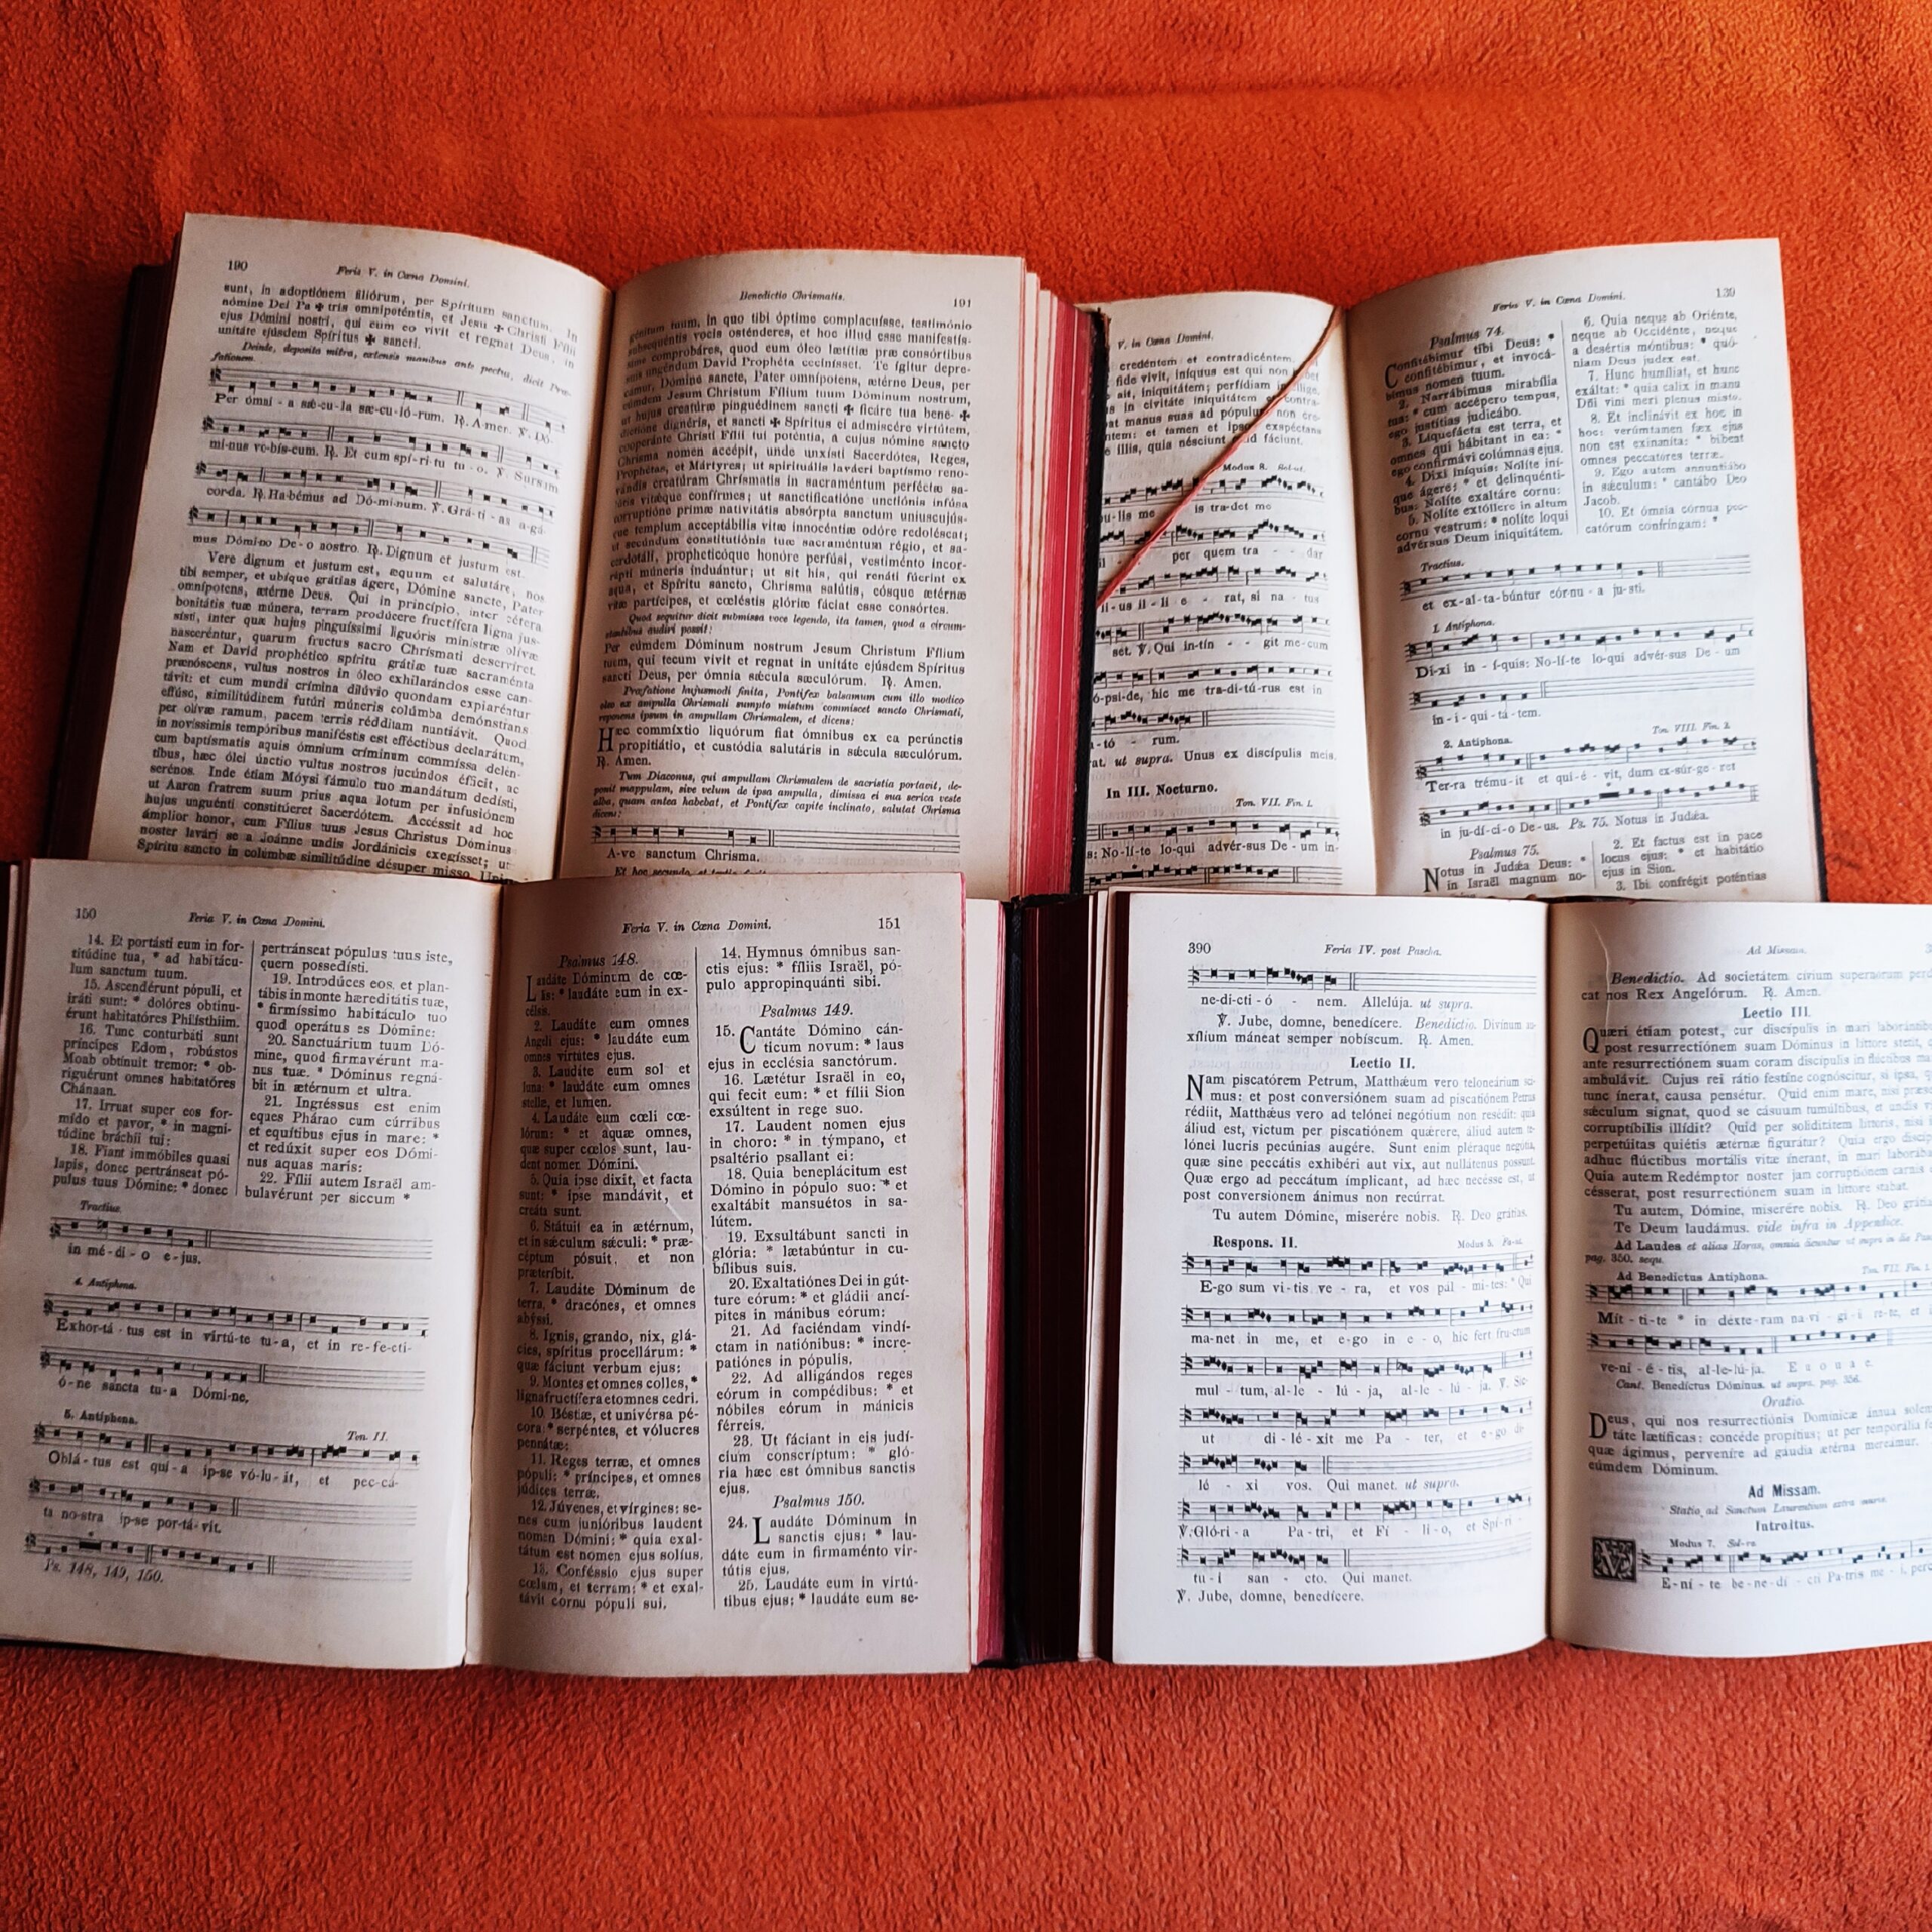 190
Feria V. in Cœna Domini.
sunt, in adoptiónem filiórum, per Spíritum sanctum. In
nómine Dei Pa ✠ tris omnipoténtis, et Jesu ✠ Christi Fílii
ejus Dómini nostri, qui cum eo vivit et regnat Deus, in
unitáte ejúsdem Spíritus ✠ sancti.
Deinde, deposita mitra, extensis manibus ante pectus, dicit Præ-
fationem.
Per ómni - a sǽ-cu-la sæ-cu-ló-rum. ℟. A-men. ℣. Dó-
mi-nus vo-bís-cum. ℟. Et cum spí-ri-tu tu - o. ℣. Sursum
corda. ℟. Ha-bémus ad Dó-mi-num. ℣. Grá-ti-as a-gá-
mus Dómi-no De-o nostro. ℟. Dignum et justum est.
Vere dignum et justum est, æquum et salutáre, nos
tibi semper, et ubíque grátias ágere, Dómine sancte, Pater
omnípotens, ætérne Deus. Qui in princípio, inter cétera
bonitátis tuæ múnera, terram prodúcere fructífera ligna jus-
sísti, inter quæ hujus pinguíssimi liquóris minístræ olívæ
nasceréntur, quarum fructus sacro Chrísmati desérviret.
Nam et David prophético spíritu grátiæ tuæ sacraménta
prænóscens, vultus nostros in óleo exhilarándos esse can-
távit: et cum mundi crímina dilúvio quondam expiaréntur
effúso, similitúdinem futúri múneris colúmba demónstrans
per olívæ ramum, pacem terris rédditam nuntiávit. Quod
in novíssimis tempóribus maniféstis est efféctibus declarátum,
cum baptísmatis aquis ómnium críminum commíssa delén-
tibus, hæc ólei únctio vultus nostros jucúndos éfficit, ac
serénos. Inde étiam Móysi fámulo tuo mandátum dedísti,
ut Aaron fratrem suum prius aqua lotum per infusiónem
hujus unguénti constitúeret Sacerdótem. Accéssit ad hoc
ámplior honor, cum Fílius tuus Jesus Christus Dóminus
noster lavári se a Joánne undis Jordánicis exegísset; ut
Spíritu sancto in colúmbæ similitúdine désuper misso
Benedictio Chrismatis.
191
génitum tuum, in quo tibi óptime complacuísse, testimónio
subsequéntis vocis osténderes, et hoc illud esse manifestís-
sime comprobáres, quod eum óleo lætítiæ præ consórtibus
suis ungéndum David Prophéta cecinísset. Te ígitur depre-
cámur, Dómine sancte, Pater omnípotens, ætérne Deus, per
eúmdem Jesum Christum Fílium tuum Dóminum nostrum,
ut hujus creatúræ pinguédinem sancti ✠ ficáre tua bene- ✠
dictióne dignéris, et sancti ✠ Spíritus ei admiscére virtútem,
cooperánte Christi Fílii tui poténtia, a cujus nómine sancto
Chrisma nomen accépit, unde unxísti Sacerdótes, Reges,
Prophétas, et Mártyres; ut spirituális laváeri baptísmo reno-
vándis creatúram Chrísmatis in sacraméntum perféctæ sa-
lútis vitǽque confírmes; ut sanctificatióne unctiónis infúsa
corruptióne primæ nativitátis absórpta sanctum uniuscujús-
que templum acceptábilis vitæ innocéntiæ odóre redoléscat;
ut secúndum constitutiónis tuæ sacraméntum régio, et sa-
cerdotáli, propheticóque honóre perfúsi, vestiménto incor-
rúpti múneris induántur; ut sit his, qui renáti fúerint ex
aqua, et Spíritu sancto, Chrisma salútis, eósque ætérnæ
vitæ partícipes, et cœléstis glóriæ fáciat esse consórtes.
Quod sequitur dicit submissa voce legendo, ita tamen, quod a circum-
stantibus audiri possit:
Per eúmdem Dóminum nostrum Jesum Christum Fílium
tuum, qui tecum vivit et regnat in unitáte ejúsdem Spíritus
sancti Deus, per ómnia sǽcula sæculórum. ℟. Amen.
Præfatione hujusmodi finita, Pontifex balsamum cum illo modico
oleo ex ampulla Chrismali sumpto mistum commiscet sancto Chrismati,
reponens ipsum in ampullam Chrismalem, et dicens:
Hæc commíxtio liquórum fiat ómnibus ex ea perúnctis
propitiátio, et custódia salutáris in sǽcula sæculórum.
℟. Amen.
Tum Diaconus, qui ampullam Chrismalem de sacristia portavit, de-
ponit mappulam, sive velum de ipsa ampulla, dimissa ei sua serica veste
alba, quam antea habebat, et Pontifex capite inclinato, salutat Chrisma
dicens:
A-ve sanctum Chrisma.
V. in Cœna Domini.
credéntem et contradicéntem.
fide vivit, iníquus est qui non
ait, iniquitátem; perfídiam
in civitáte iniquitátem et contra-
manus suas ad pópulum non cre-
et tamen et ipsos exspéctans
illis, quia nésciunt quid fáciunt.
Modus 8. Sol-ut.
-pu-lis me is tra-det me
per quem tra - - dar
il-li e - rat, si na - tus
set. ℣. Qui in-tín - - git me-cum
-ó-psi-de, hic me tra-di-tú-rus est in
-tó - rum.
ut supra. Unus ex discípulis meis.
In III. Nocturno.
Ton. VII. Fin. 1.
No-lí-te lo-qui advér-sus De - um in-
Feria V. in Cœna Domini.
139
Psalmus 74.
Confitébimur tibi Deus: *
confitébimur, et invocá-
bimus nomen tuum.
2. Narrábimus mirabília
tua: * cum accépero tempus,
ego justítias judicábo.
3. Liquefácta est terra, et
omnes qui hábitant in ea: *
ego confirmávi colúmnas ejus.
4. Dixi iníquis: Nolíte iní-
que ágere: * et delinquénti-
bus: Nolíte exaltáre cornu:
5. Nolíte extóllere in altum
cornu vestrum: * nolíte loqui
advérsus Deum iniquitátem.
6. Quia neque ab Oriénte,
neque ab Occidénte, neque
a desértis móntibus: * quó-
niam Deus judex est.
7. Hunc humíliat, et hunc
exáltat: * quia calix in manu
Dñi vini meri plenus misto.
8. Et inclinávit ex hoc in
hoc: verúmtamen fæx ejus
non est exinanita: * bibent
omnes peccatores terræ.
9. Ego autem annuntiábo
in sǽculum: * cantábo Deo
Jacob.
10. Et ómnia córnua pec-
catórum confríngam: *
Tractius.
et ex-al-ta-búntur córnu - a ju-sti.
1. Antiphona.
Di-xi in - í-quis: No-lí-te lo-qui advér-sus De - um
in - i - qui - tá - tem.
2. Antiphona.
Ton. VIII. Fin. 2.
Ter-ra trému-it et qui-é - vit, dum ex-súr-ge-ret
in ju-dí-ci-o De-us. Ps. 75. Notus in Judǽa.
Psalmus 75.
Notus in Judǽa Deus: *
in Israël magnum no-
2. Et factus est in pace
locus ejus: * et habitátio
ejus in Sion.
3. Ibi confrégit poténtias
150
Feria V. in Cœna Domini.
14. Et portásti eum in for-
titúdine tua, * ad habitácu-
lum sanctum tuum.
15. Ascendérunt pópuli, et
iráti sunt: * dolóres obtinu-
érunt habitatóres Philísthiim.
16. Tunc conturbáti sunt
príncipes Edom, robústos
Moab obtínuit tremor: * ob-
riguérunt omnes habitatóres
Chánaan.
17. Irruat super eos for-
mído et pavor, * in magni-
túdine bráchii tui:
18. Fiant immóbiles quasi
lapis, donec pertránseat pó-
pulus tuus Dómine: * donec
pertránseat pópulus tuus iste,
quem possedísti.
19. Introdúces eos, et plan-
tábis in monte hæreditátis tuæ,
* firmíssimo habitáculo tuo
quod operátus es Dómine:
20. Sanctuárium tuum Dó-
mine, quod firmavérunt ma-
nus tuæ. * Dóminus regná-
bit in ætérnum et ultra.
21. Ingréssus est enim
eques Phárao cum cúrribus
et equítibus ejus in mare: *
et redúxit super eos Dómi-
nus aquas maris:
22. Fílii autem Israël am-
bulavérunt per siccum *
Tractius.
in mé-di - o e-jus.
4. Antiphona.
Exhor-tá - tus est in virtú-te tu-a, et in re-fe-cti-
ó-ne sancta tu-a Dómi-ne.
5. Antiphona.
Ton. II.
Oblá-tus est qui-a ip-se vó-lu-it, et pec-cá-
ta no-stra ip-se por-tá-vit.
Ps. 148, 149, 150.
Feria V. in Cœna Domini.
151
Psalmus 148.
Laudáte Dóminum de cœ-
lis: * laudáte eum in ex-
célsis.
2. Laudáte eum omnes
Angeli ejus: * laudáte eum
omnes virtútes ejus.
3. Laudáte eum sol et
luna: * laudáte eum omnes
stellæ, et lumen.
4. Laudáte eum cœli cœ-
lórum: * et aquæ omnes,
quæ super cœlos sunt, lau-
dent nomen Dómini.
5. Quia ipse dixit, et facta
sunt: * ipse mandávit, et
creáta sunt.
6. Státuit ea in ætérnum,
et in sǽculum sǽculi: * præ-
céptum pósuit, et non
præteríbit.
7. Laudáte Dóminum de
terra, * dracónes, et omnes
abýssi.
8. Ignis, grando, nix, glá-
cies, spíritus procellárum: *
quæ fáciunt verbum ejus:
9. Montes et omnes colles, *
ligna fructífera et omnes cedri.
10. Béstiæ, et univérsa pé-
cora: * serpéntes, et vólucres
pennátæ:
11. Reges terræ, et omnes
pópuli: * príncipes, et omnes
júdices terræ.
12. Júvenes, et vírgines: se-
nes cum junióribus laudent
nomen Dómini: * quia exal-
tátum est nomen ejus solíus.
13. Conféssio ejus super
cœlum, et terram: * et exal-
távit cornu pópuli sui.
14. Hymnus ómnibus san-
ctis ejus: * fíliis Israël, pó-
pulo appropinquánti sibi.
Psalmus 149.
15. Cantáte Dómino cán-
ticum novum: * laus
ejus in ecclésia sanctórum.
16. Lætétur Israël in eo,
qui fecit eum: * et fílii Sion
exsúltent in rege suo.
17. Laudent nomen ejus
in choro: * in týmpano, et
psaltério psallant ei:
18. Quia beneplácitum est
Dómino in pópulo suo: * et
exaltábit mansuétos in sa-
lútem.
19. Exsultábunt sancti in
glória: * lætabúntur in cu-
bílibus suis.
20. Exaltatiónes Dei in gút-
ture eórum: * et gládii ancí-
pites in mánibus eórum:
21. Ad faciéndam vindí-
ctam in natiónibus: * incre-
patiónes in pópulis.
22. Ad alligándos reges
eórum in compédibus: * et
nóbiles eórum in mánicis
férreis.
23. Ut fáciant in eis judí-
cium conscríptum: * gló-
ria hæc est ómnibus sanctis
ejus.
Psalmus 150.
24. Laudáte Dóminum in
sanctis ejus: * lau-
dáte eum in firmaménto vir-
tútis ejus.
25. Laudáte eum in virtú-
tibus ejus: * laudáte eum se-
390
Feria IV. post Pascha.
ne-di-cti - ó - nem. Allelúja. ut supra.
℣. Jube, domne, benedícere. Benedictio. Divínum au-
xílium máneat semper nobíscum. ℟. Amen.
Lectio II.
Nam piscatórem Petrum, Matthǽum vero teloneárium sci-
mus: et post conversiónem suam ad piscatiónem Petrus
rédiit, Matthǽus vero ad telónei negótium non resédit: quia
áliud est, victum per piscatiónem quǽrere, áliud autem te-
lónei lucris pecúnias augére. Sunt enim pléraque negótia,
quæ sine peccátis exhibéri aut vix, aut nullátenus possunt.
Quæ ergo ad peccátum ímplicant, ad hæc necésse est, ut
post conversiónem ánimus non recúrrat.
Tu autem Dómine, miserére nobis. ℟. Deo grátias.
Respons. II.
Modus 5. Fa-ut.
E-go sum vi-tis ve - ra, et vos pál - mi-tes: * Qui
ma-net in me, et e-go in e - o, hic fert fru-ctum
mul - tum, al-le - lú - ja, al-le - lú - ja. ℣. Sic-
ut di-lé-xit me Pa - ter, et e-go di-
lé - xi vos. Qui manet. ut supra.
℣. Gló-ri-a Pa-tri, et Fí - li-o, et Spí-rí-
tu-i san - cto. Qui manet.
℣. Jube, domne, benedícere.
Ad Missam.
Benedictio. Ad societátem cívium supernórum
cat nos Rex Angelórum. ℟. Amen.
Lectio III.
Quæri étiam potest, cur discípulis in mari laborántibus
post resurrectiónem suam Dóminus in líttore stetit,
ante resurrectiónem suam coram discípulis in flúctibus
ambulávit. Cujus rei rátio festíne cognóscitur, si ipsa,
tunc ínerat, causa pensétur. Quid enim mare, nisi
sǽculum signat, quod se cásuum tumúltibus, et undis
corruptíbilis illídit? Quid per soliditátem líttoris, nisi
perpetúitas quiétis ætérnæ figurátur? Quia ergo
adhuc flúctibus mortális vitæ ínerant, in mari
Quia autem Redémptor noster jam corruptiónem carnis
excésserat, post resurrectiónem suam in líttore stabat.
Tu autem, Dómine, miserére nobis. ℟. Deo
Te Deum laudámus. vide infra in Appendice.
Ad Laudes et alias Horas, omnia dicuntur ut supra in die
pag. 350. sequ.
Ad Benedictus Antiphona.
Ton. VII. Fin. 1.
Mít - ti-te * in déxte-ram na-ví - gi-i re-te, et
ve-ni - é - tis, al-le-lú-ja. E u o u a e.
Cant. Benedíctus Dóminus. ut supra. pag. 356.
Oratio.
Deus, qui nos resurrectiónis Domínicæ ánnua
táte lætíficas: concéde propítius; ut per temporália
quæ ágimus, perveníre ad gáudia ætérna mereámur.
eúmdem Dóminum.
Ad Missam.
Statio ad Sanctum Laurentium extra muros.
Introitus.
Modus 7. Sol-re.
E-ní - te be-ne-dí - cti Pa-tris me - i,